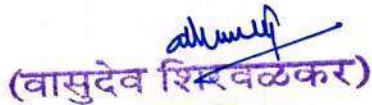 (वासुदेव शिरवळकर)